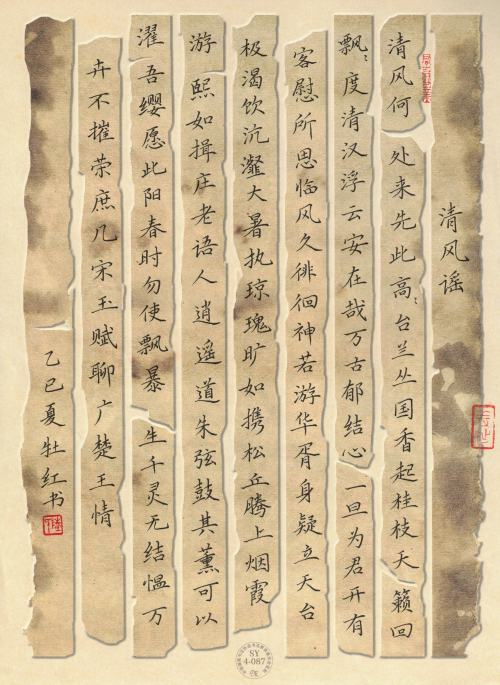 清风谣
清风何处来先此高=台兰丛国香起桂枝天籁回
飘=度清汉浮云安在哉万古郁结心一旦为君开有
客慰所思临风久徘徊神若游华胥身疑立天台
极渴饮沆瀣大暑执琼瑰旷如携松丘腾上烟霞
游熙如揖庄老语人逍遥道朱弦鼓其薰可以
濯吾缨愿此阳春时勿使飘暴生千灵无结愠万
卉不摧荣庶几宋玉赋聊广楚王情
乙巳夏牡红书
SY
4-087